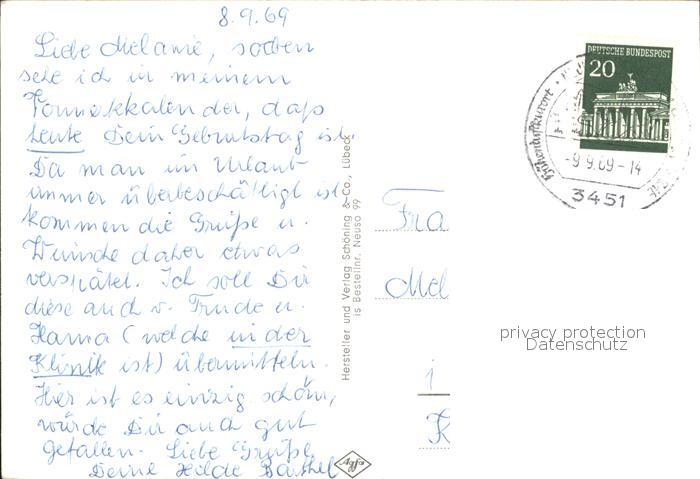 8.9.69
Liebe Melanie, soeben
sehe ich in meinem
Vormerkkalender, daß
heute Dein Geburtstag ist.
Da man im Urlaub
immer überbeschäftigt ist
kommen die Grüße u.
Wünsche daher etwas
verspätet. Ich soll Dir
diese auch v. Trude u.
Hanna (welche in der
Klinik ist) übermitteln.
Hier ist es einzig schön,
würde Dir auch gut
gefallen. Liebe Grüße
Deine Hilde Barthel
Hersteller und Verlag Schöning & Co., Lübeck
is Bestellnr. Neuso 99
Agfa
DEUTSCHE BUNDESPOST
20
Höhenluftkurort
-9.9.69-14
3451
Fra
Mel
i
K
privacy protection
Datenschutz